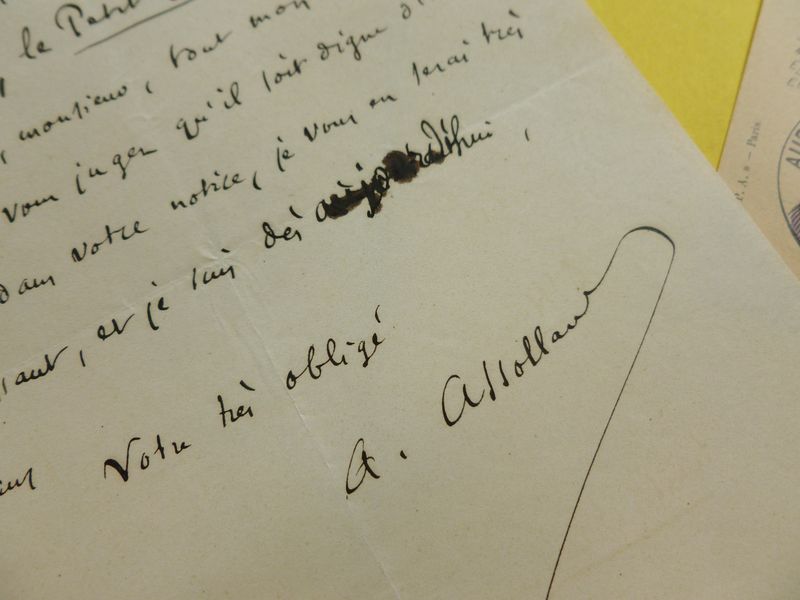 le Petit
, monsieur, tout mon
vous jugez qu'il soit digne d'
dans votre notice, je vous en serai très
sant, et je suis dès aujourd'hui,
Votre très obligé
A. Assollant
P. A. - Paris